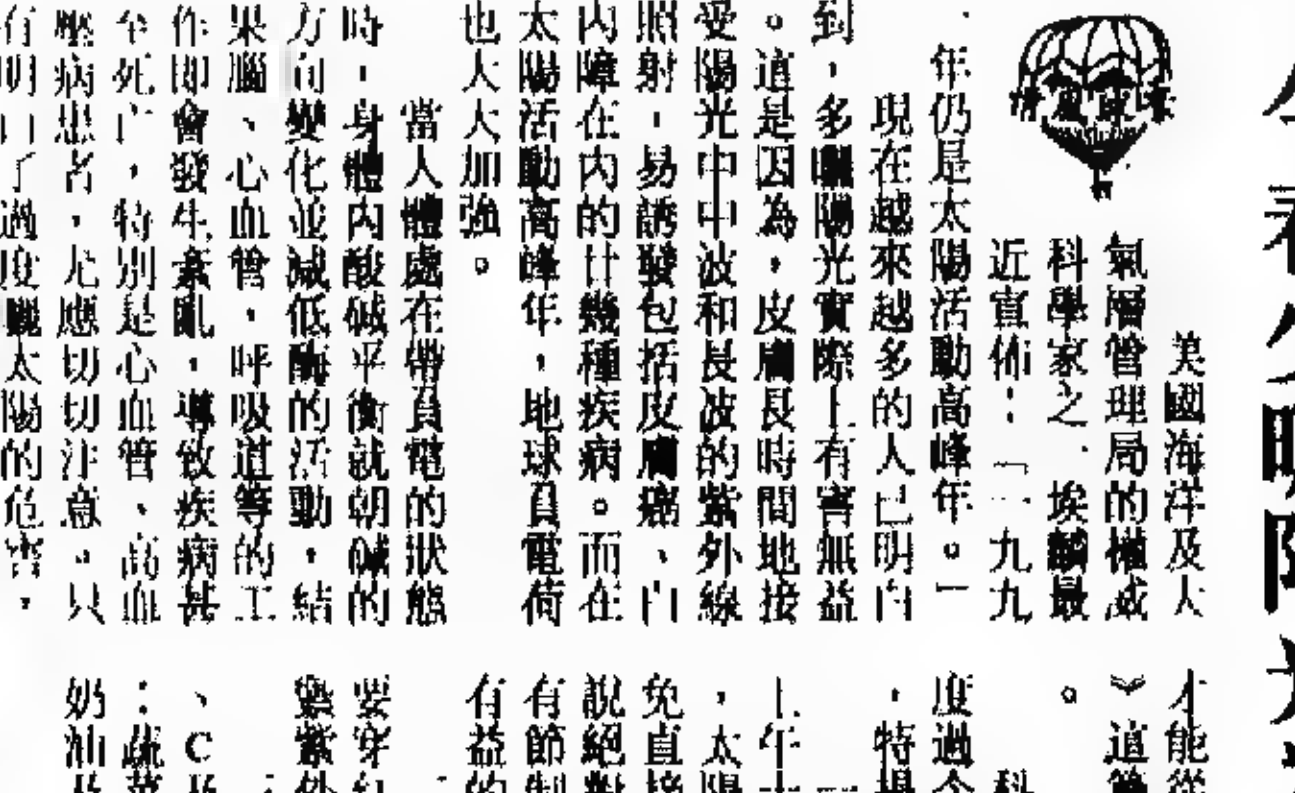 美國海洋及大
氣層管理局的權威
科學家之一埃麟最
近宣佈：「一九九
一年仍是太陽活動高峰年。」
現在越來越多的人已明白
到，多曬陽光實際上有害無益
。這是因為，皮膚長時間地接
受陽光中中波和長波的紫外線
照射，易誘發包括皮膚癌、白
內障在內的廿幾種疾病。而在
太陽活動高峰年，地球負電荷
也大大加強。
當人體處在帶負電的狀態
時，身體內酸碱平衡就朝碱的
方向變化並減低酶的活動，結
果腦、心血管，呼吸道等的工
作即會發生紊亂，導致疾病甚
至死亡，特別是心血管、高血
壓病患者，尤應切切注意。只
有明白了過度曬太陽的危害，
才能從
》這
。
度過今
，特
上午
，太陽
免直接
說絕對
有節制
有益的
要穿紅
紫外
、C及
：蔬菜
奶油及